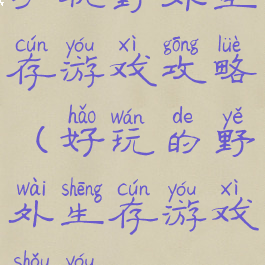 cún yóu xì gōng lüè
存游戏攻略
hǎo wán de yě
（好玩的野
wài shēng cún yóu xì
外生存游戏
shǒu yóu